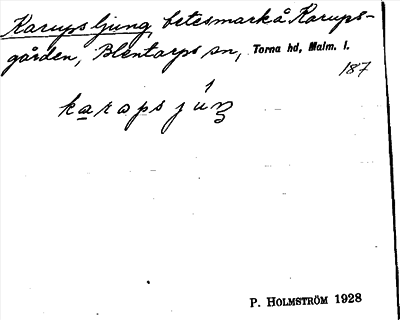 Karups ljung, betesmark å Karups-
gården, Blentarps sn, Torna hd, Malm. l.
187
karapsjúŋ
P. HOLMSTRÖM 1928